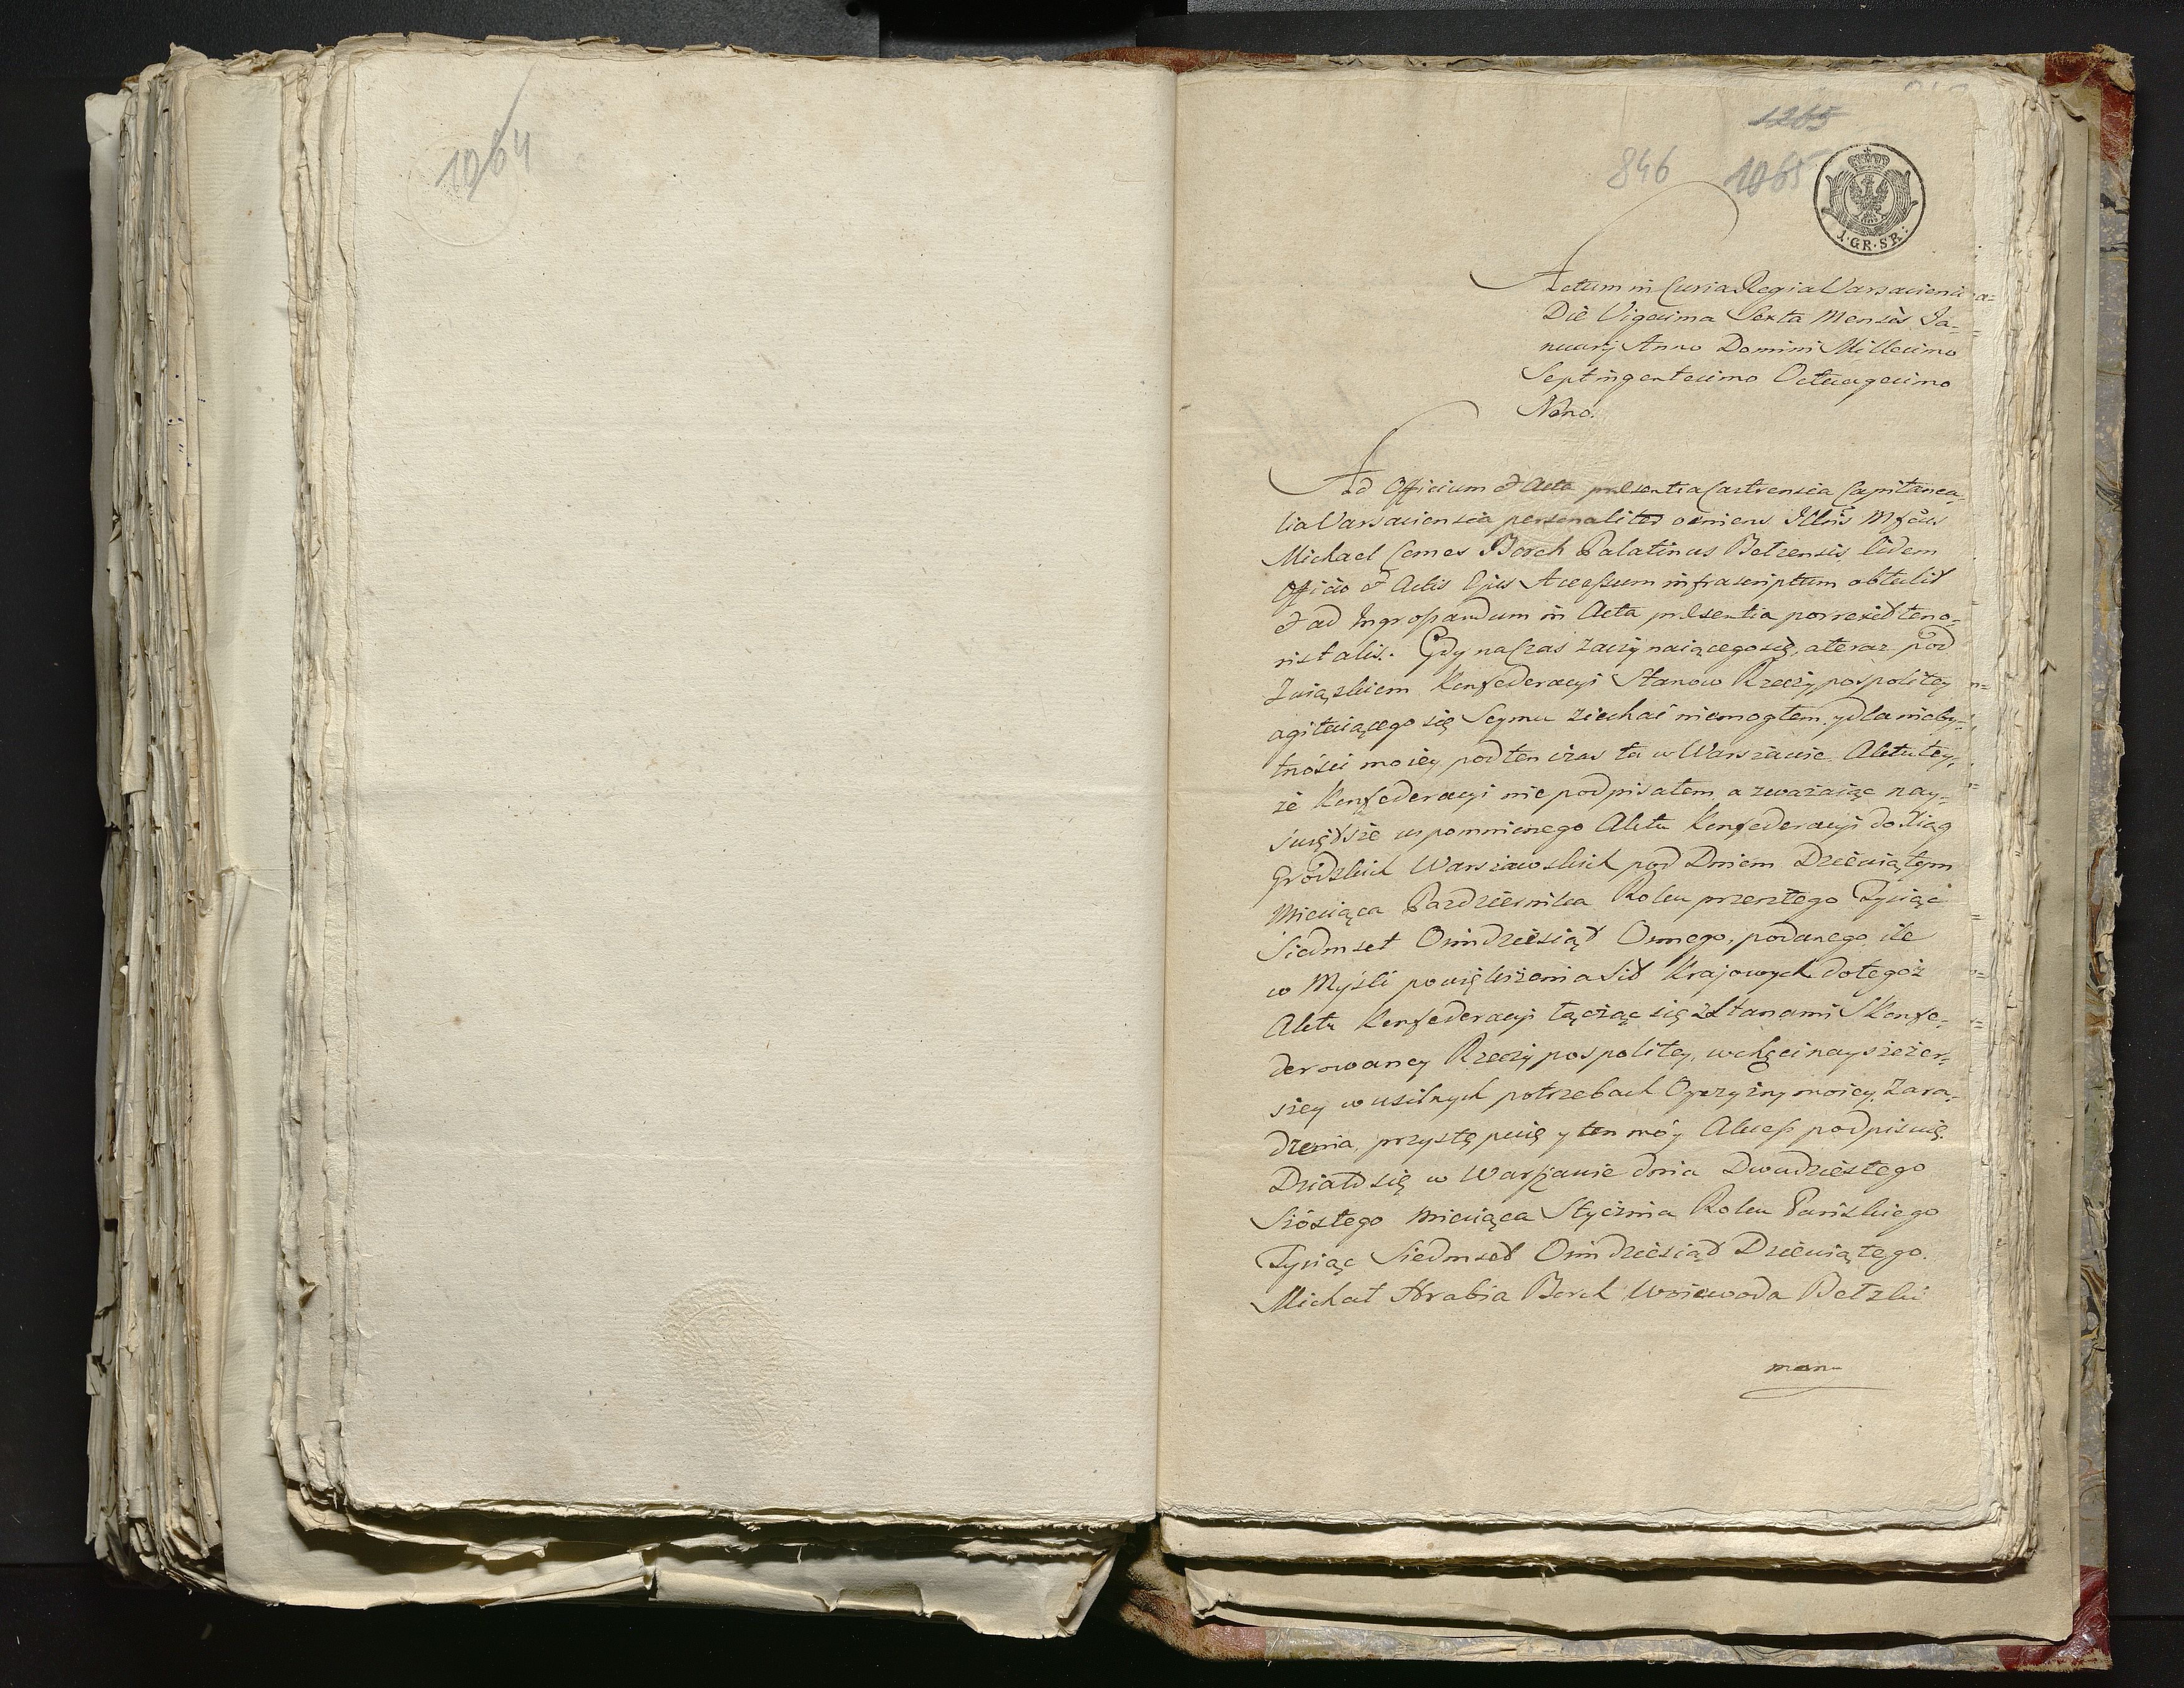 1064
1265
846 1065
1.GR.SR:
Actum in Curia Regia Varsaviensi
Die Vigesima Sexta Mensis Ja-
nuarij Anno Domini Millesimo
Septingentesimo Octuagesimo
Nono.
Ad Officium et Acta præsentia Castrensia Capitanea-
lia Varsaviensia personaliter veniens Illris Mfcus
Michael Comes Borch Palatinus Belzensis Eidem
Officio et Actis Ejus Accessum infrascriptum obtulit
et ad Ingrossandum in Acta præsentia porrexit teno-
ris talis. Gdy na Czas zaczynaiącego się, a teraz pod
Związkiem Konfederacyi Stanow Rzeczypospolitey
agituiącego się Seymu ziechać niemogłem, y dla nieby-
tności moiey pod ten czas tu w Warszawie Aktu tey-
że Konfederacyi nie podpisałem, a zważaiąc nay-
świętsze wspomnionego Aktu Konfederacyi do Xiąg
Grodzkich Warszawskich pod Dniem Dziewiątym
Miesiąca Pazdziernika Roku przeszłego Tysiąc
Siedmset Osmdziesiąt Osmego, podanego, ile
w Myśli powiększenia Sił Krajowych do tegoż
Aktu Konfederacyi łącząc się z Stanami Skonfe-
derowaney Rzeczypospolitey, w chęci nayszczer-
szey w usilnych potrzebach Oyczyzny moiey zara-
dzenia, przystępuię y ten móy Akcess podpisuię.
Działo się w Warszawie dnia Dwudziestego
Szóstego Miesiąca Stycznia Roku Pańskiego
Tysiąc Siedmset Osmdziesiąt Dziewiątego.
Michał Hrabia Borch Woiewoda Bełzki